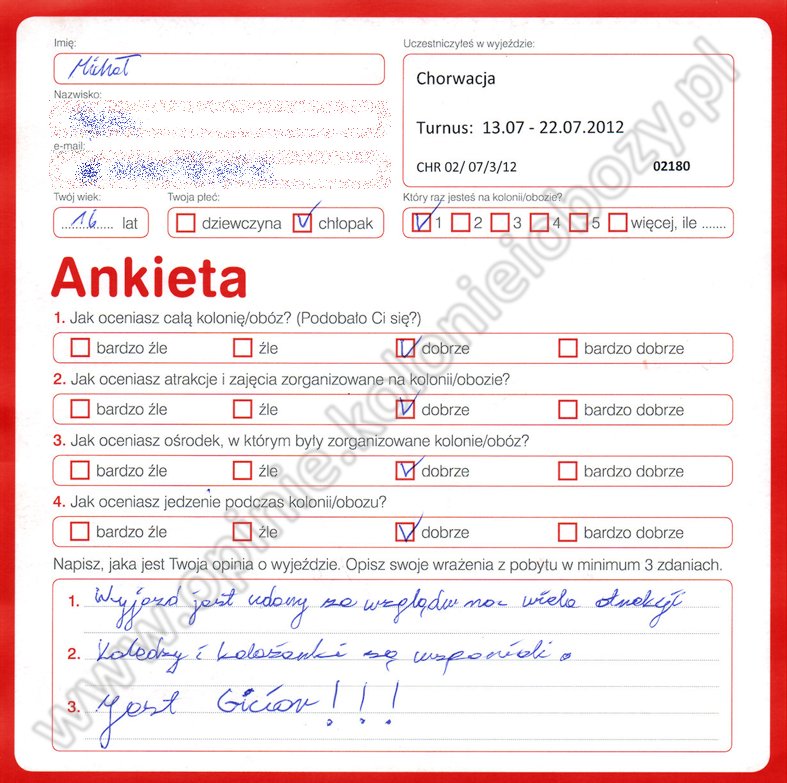 Imię:
Uczestniczyłeś w wyjeździe:
Michał
Chorwacja
Nazwisko:
Turnus: 13.07 - 22.07.2012
e-mail:
CHR 02/ 07/3/12 02180
Twój wiek:
Twoja płeć:
Który raz jesteś na kolonii/obozie?
16 lat
dziewczyna chłopak
1 2 3 4 5 więcej, ile .......
Ankieta
1. Jak oceniasz całą kolonię/obóz? (Podobało Ci się?)
bardzo źle źle dobrze bardzo dobrze
2. Jak oceniasz atrakcje i zajęcia zorganizowane na kolonii/obozie?
bardzo źle źle dobrze bardzo dobrze
3. Jak oceniasz ośrodek, w którym były zorganizowane kolonie/obóz?
bardzo źle źle dobrze bardzo dobrze
4. Jak oceniasz jedzenie podczas kolonii/obozu?
bardzo źle źle dobrze bardzo dobrze
Napisz, jaka jest Twoja opinia o wyjeździe. Opisz swoje wrażenia z pobytu w minimum 3 zdaniach.
1. Wyjazd jest udany ze względu na wiele atrakcji
2. Koledzy i koleżanki są wspaniali.
3. Jest Gicior!!!
www.opinie.kolonieiobozy.pl